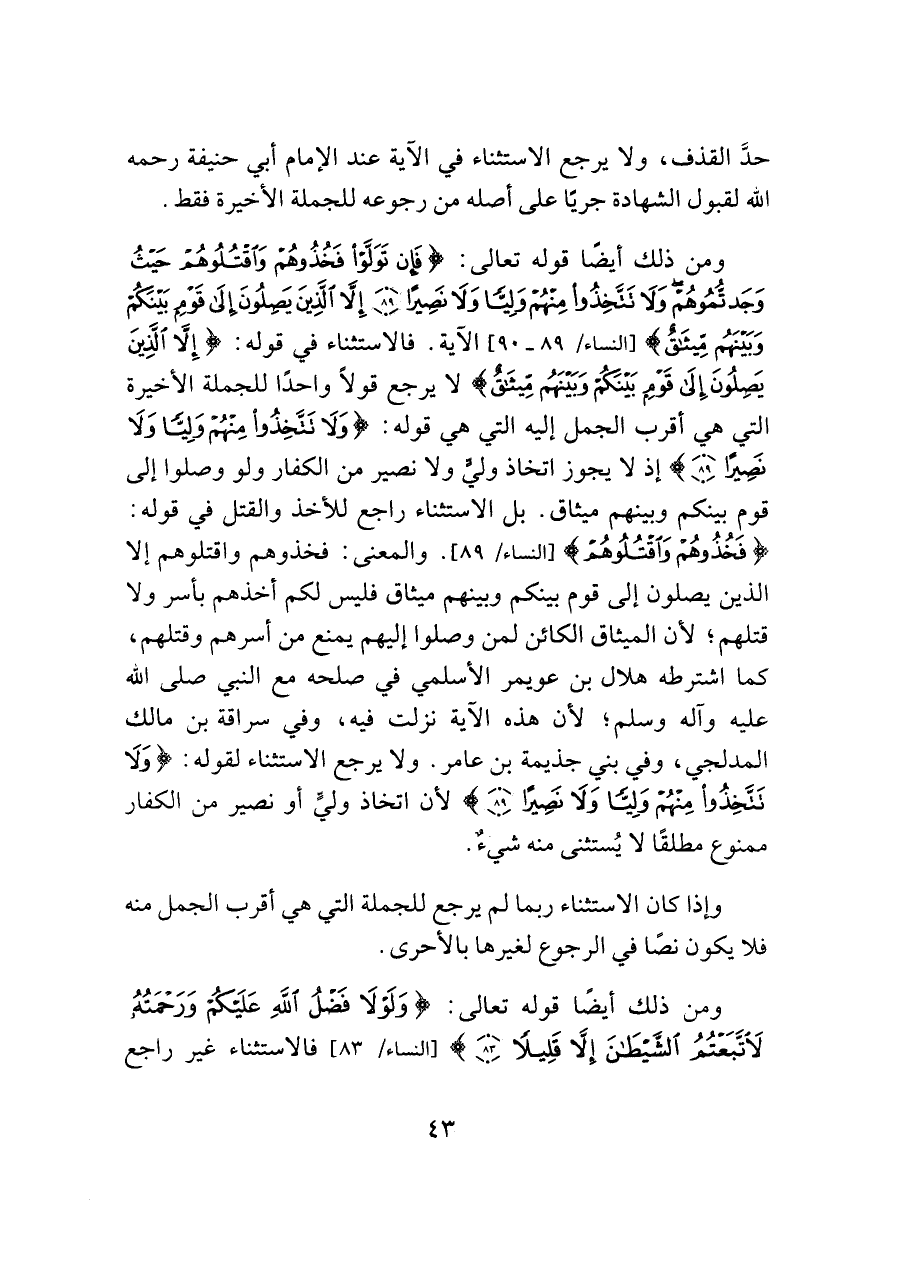 حدَّ القذف، ولا يرجع الاستثناء في الآية عند الإمام أبي حنيفة رحمه
الله لقبول الشهادة جريًا على أصله من رجوعه للجملة الأخيرة فقط.
ومن ذلك أيضًا قوله تعالى: ﴿فَإِن تَوَلَّوْا۟ فَخُذُوهُمْ وَٱقْتُلُوهُمْ حَيْثُ
وَجَدتُّمُوهُمْ ۖ وَلَا تَتَّخِذُوا۟ مِنْهُمْ وَلِيًّا وَلَا نَصِيرًا ۝٨٩ إِلَّا ٱلَّذِينَ يَصِلُونَ إِلَىٰ قَوْمٍۭ بَيْنَكُمْ
وَبَيْنَهُم مِّيثَـٰقٌ﴾ [النساء/ ٨٩ ـ ٩٠] الآية. فالاستثناء في قوله: ﴿إِلَّا ٱلَّذِينَ
يَصِلُونَ إِلَىٰ قَوْمٍۭ بَيْنَكُمْ وَبَيْنَهُم مِّيثَـٰقٌ﴾ لا يرجع قولاً واحدًا للجملة الأخيرة
التي هي أقرب الجمل إليه التي هي قوله: ﴿وَلَا تَتَّخِذُوا۟ مِنْهُمْ وَلِيًّا وَلَا
نَصِيرًا ۝٨٩﴾ إذ لا يجوز اتخاذ وليٍّ ولا نصير من الكفار ولو وصلوا إلى
قوم بينكم وبينهم ميثاق. بل الاستثناء راجع للأخذ والقتل في قوله:
﴿فَخُذُوهُمْ وَٱقْتُلُوهُمْ﴾ [النساء/ ٨٩]. والمعنى: فخذوهم واقتلوهم إلا
الذين يصلون إلى قوم بينكم وبينهم ميثاق فليس لكم أخذهم بأسر ولا
قتلهم؛ لأن الميثاق الكائن لمن وصلوا إليهم يمنع من أسرهم وقتلهم،
كما اشترطه هلال بن عويمر الأسلمي في صلحه مع النبي صلى الله
عليه وآله وسلم؛ لأن هذه الآية نزلت فيه، وفي سراقة بن مالك
المدلجي، وفي بني جذيمة بن عامر. ولا يرجع الاستثناء لقوله: ﴿وَلَا
تَتَّخِذُوا۟ مِنْهُمْ وَلِيًّا وَلَا نَصِيرًا ۝٨٩﴾ لأن اتخاذ وليٍّ أو نصير من الكفار
ممنوع مطلقًا لا يُستثنى منه شيءٌ.
وإذا كان الاستثناء ربما لم يرجع للجملة التي هي أقرب الجمل منه
فلا يكون نصًا في الرجوع لغيرها بالأحرى.
ومن ذلك أيضًا قوله تعالى: ﴿وَلَوْلَا فَضْلُ ٱللَّهِ عَلَيْكُمْ وَرَحْمَتُهُۥ
لَٱتَّبَعْتُمُ ٱلشَّيْطَـٰنَ إِلَّا قَلِيلًا ۝٨٣﴾ [النساء/ ٨٣] فالاستثناء غير راجع
٤٣